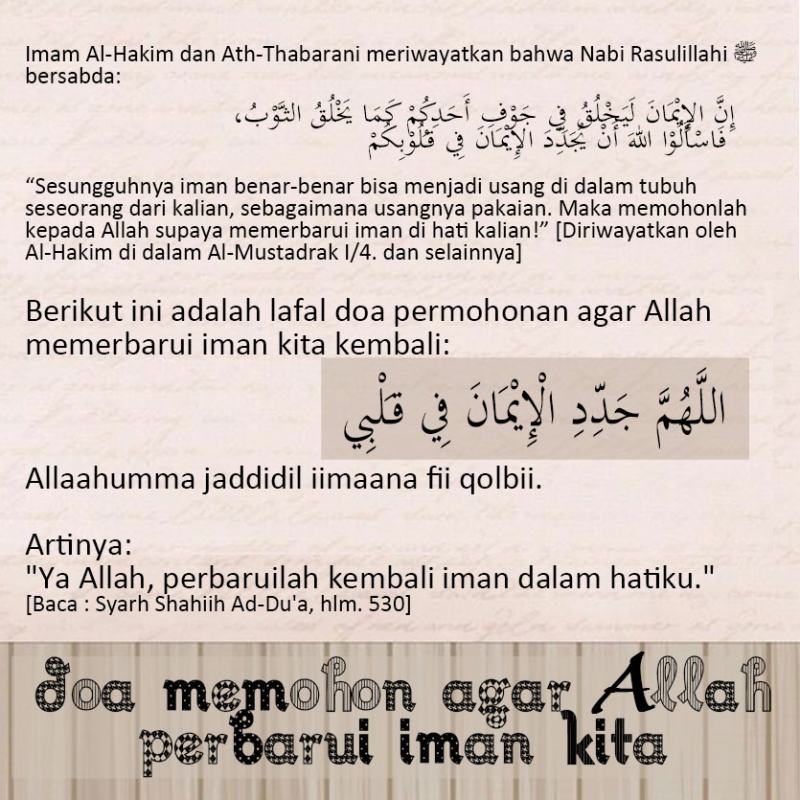 Imam Al-Hakim dan Ath-Thabarani meriwayatkan bahwa Nabi Rasulillahi ﷺ
bersabda:
إِنَّ الإِيْمَانَ لَيَخْلُقُ فِي جَوْفِ أَحَدِكُمْ كَمَا يَخْلُقُ الثَّوْبُ،
فَاسْأَلُوْا اللهَ أَنْ يُجَدِّدَ الإِيْمَانَ فِي قُلُوْبِكُمْ
“Sesungguhnya iman benar-benar bisa menjadi usang di dalam tubuh
seseorang dari kalian, sebagaimana usangnya pakaian. Maka memohonlah
kepada Allah supaya memerbarui iman di hati kalian!” [Diriwayatkan oleh
Al-Hakim di dalam Al-Mustadrak I/4. dan selainnya]
Berikut ini adalah lafal doa permohonan agar Allah
memerbarui iman kita kembali:
اللَّهُمَّ جَدِّدِ الْإِيْمَانَ فِي قَلْبِي
Allaahumma jaddidil iimaana fii qolbii.
Artinya:
"Ya Allah, perbaruilah kembali iman dalam hatiku."
[Baca : Syarh Shahiih Ad-Du'a, hlm. 530]
doa memohon agar Allah
perbarui iman kita